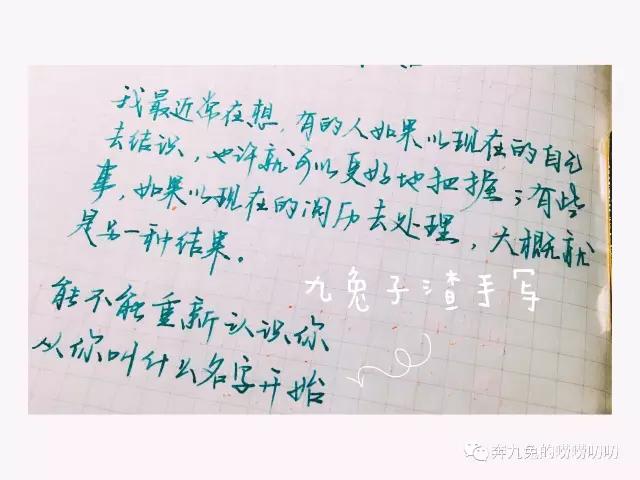 我最近常在想，有的人如果以现在的自己
去结识，也许就可以更好地把握；有些
事，如果以现在的阅历去处理，大概就
是另一种结果。
九兔子渣手写
能不能重新认识你
从你叫什么名字开始
奔九兔的唠唠叨叨